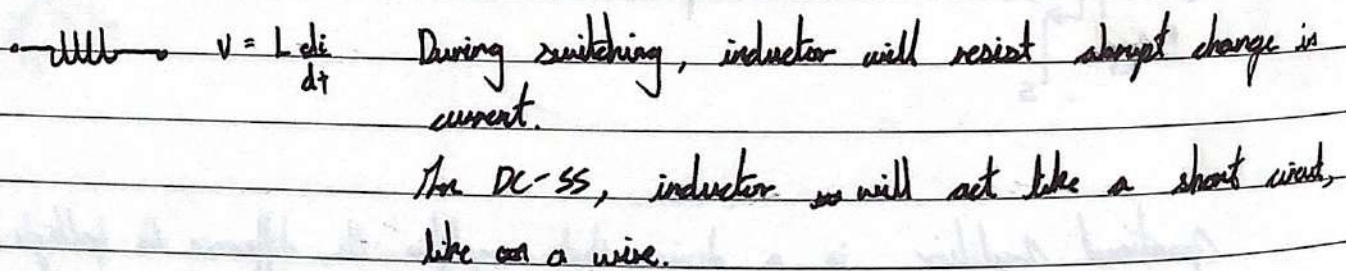 V = L di/dt During switching, inductor will resist abrupt change in
current.
In DC-SS, inductor will act like a short circuit,
like a wire.